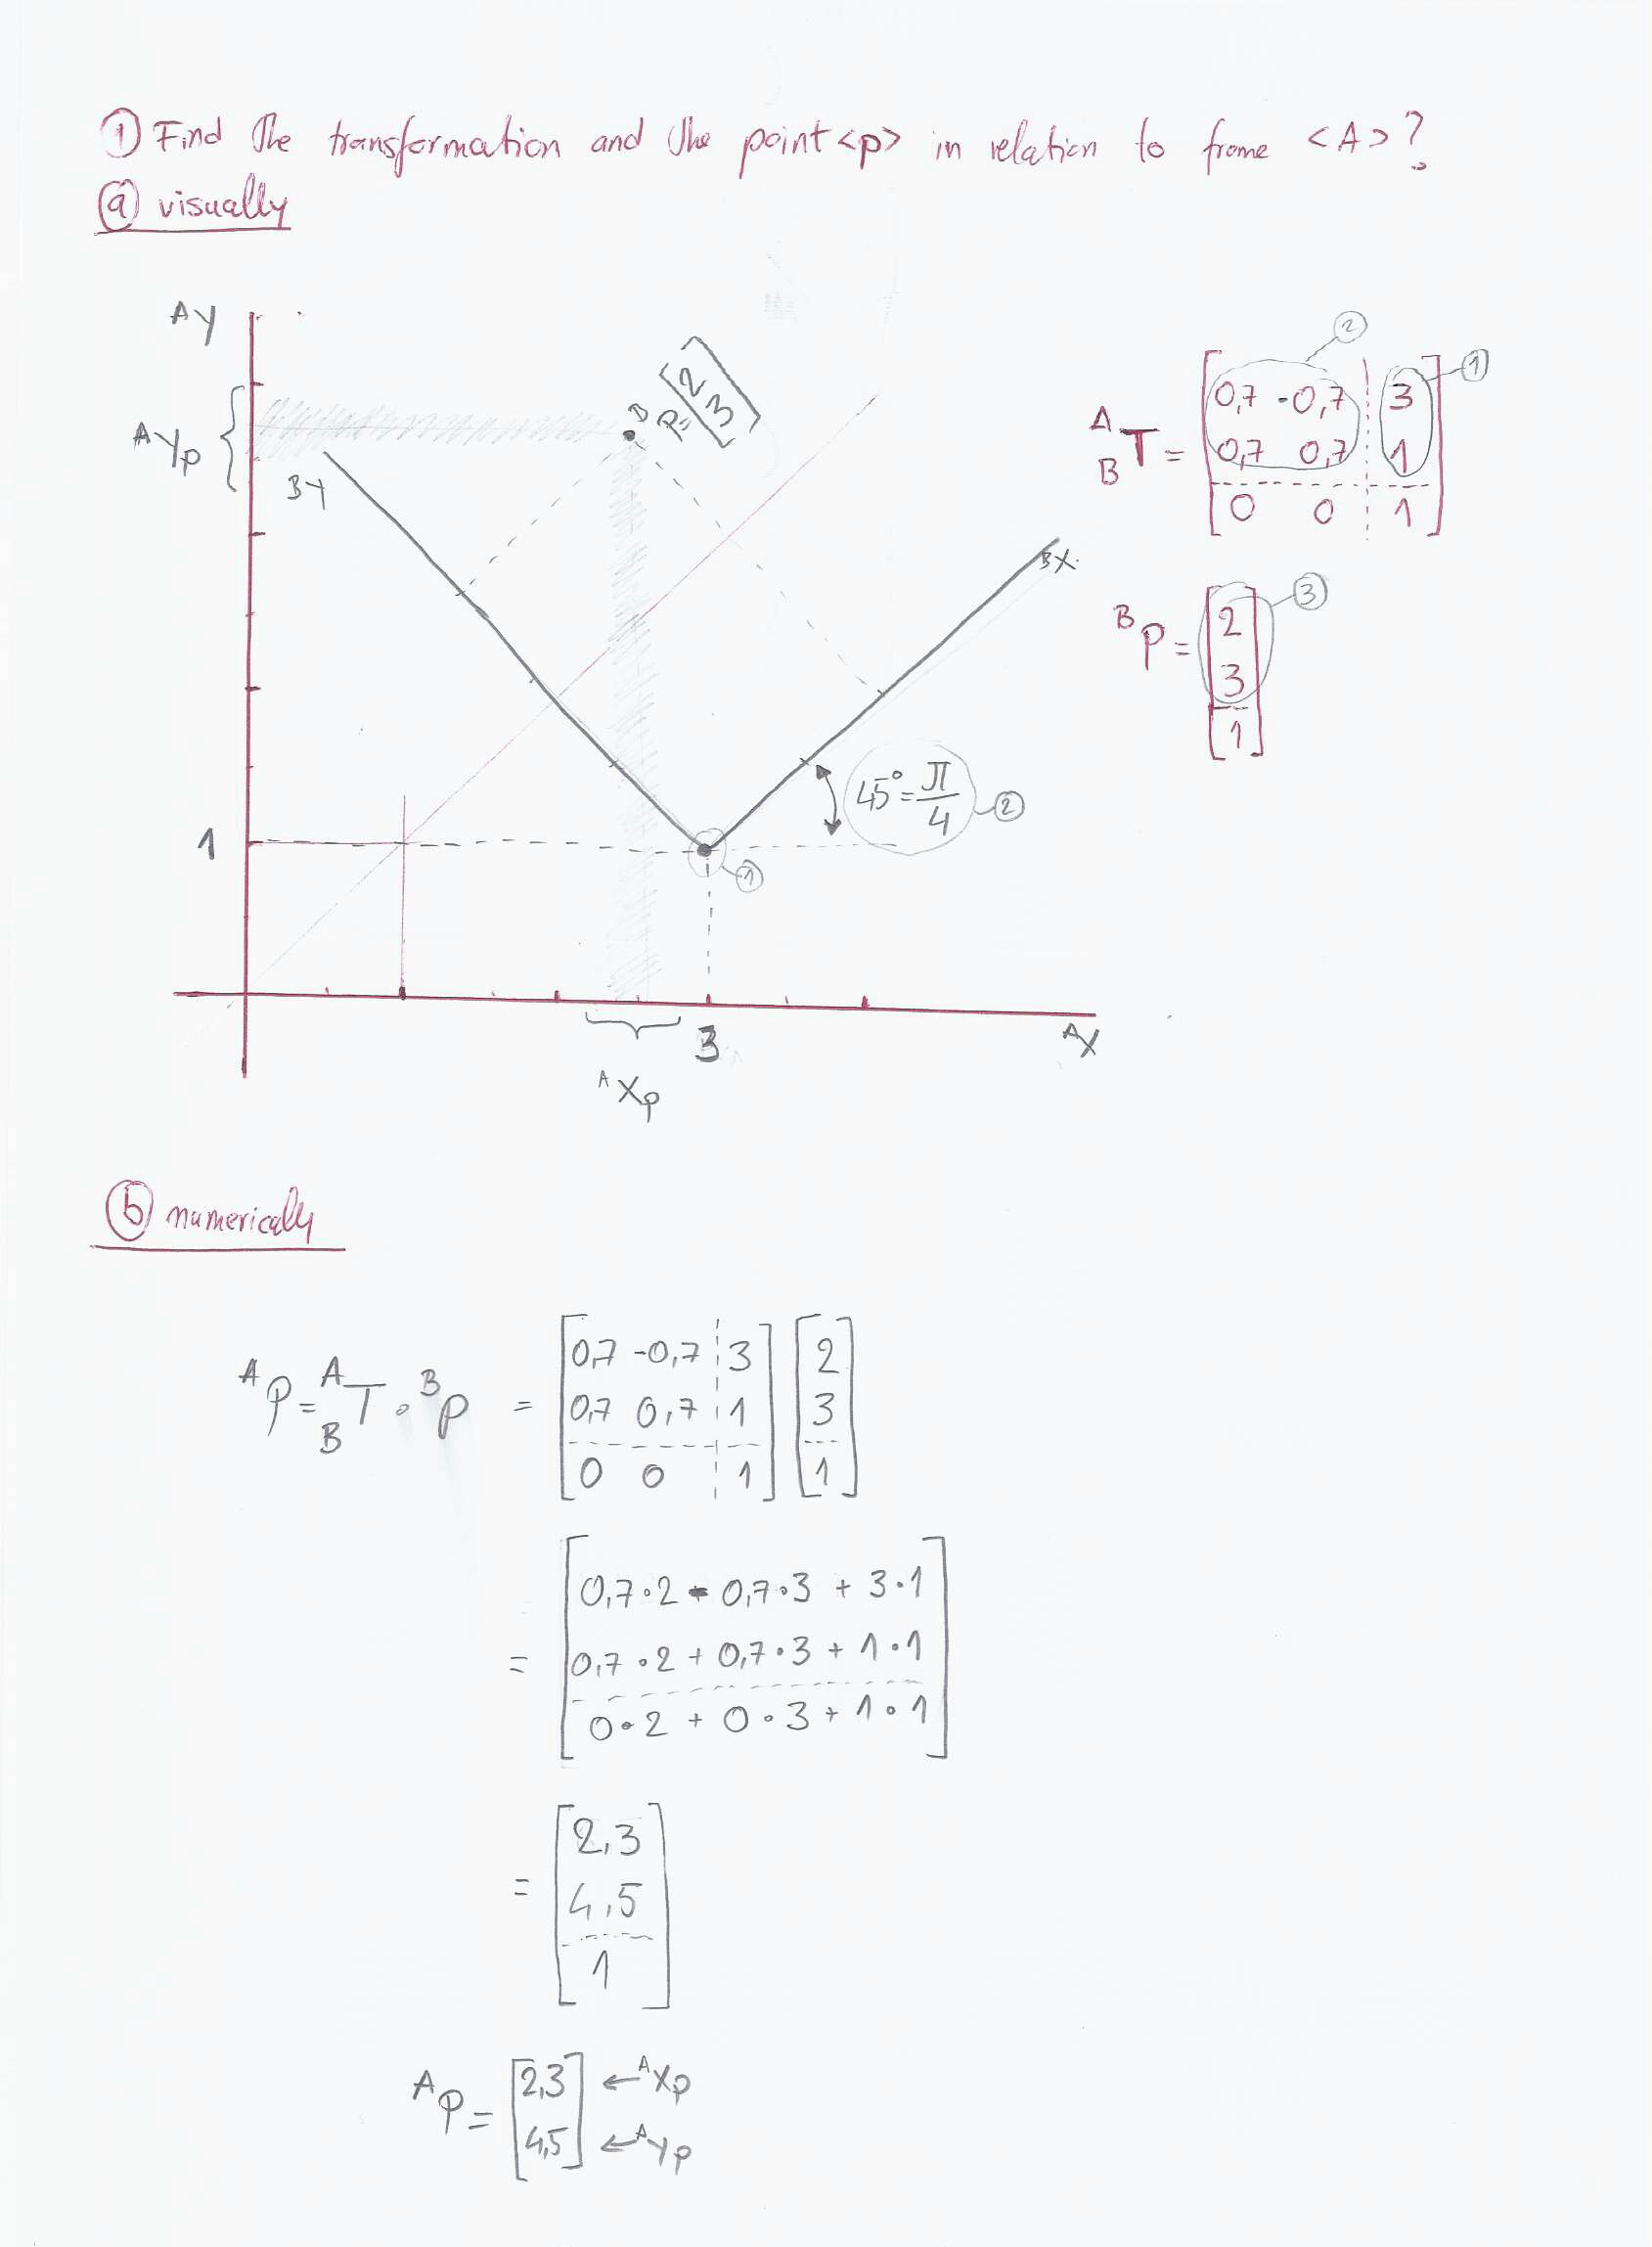 ① Find the transformation and the point <p> in relation to frame <A>?
ⓐ visually
AY
AYp
BY
P=[2 3]
BX
45°=π/4 ②
1
①
3
AXp
AX
②
①
A B T = [0,7 -0,7 3
0,7 0,7 1
0 0 1]
③
B P = [2
3
1]
ⓑ numerically
A P = A B T · B P = [0,7 -0,7 3] [2]
[0,7 0,7 1] [3]
[0 0 1] [1]
= [0,7·2 - 0,7·3 + 3·1
0,7·2 + 0,7·3 + 1·1
0·2 + 0·3 + 1·1]
= [2,3
4,5
1]
A P = [2,3] ← AXp
[4,5] ← AYp